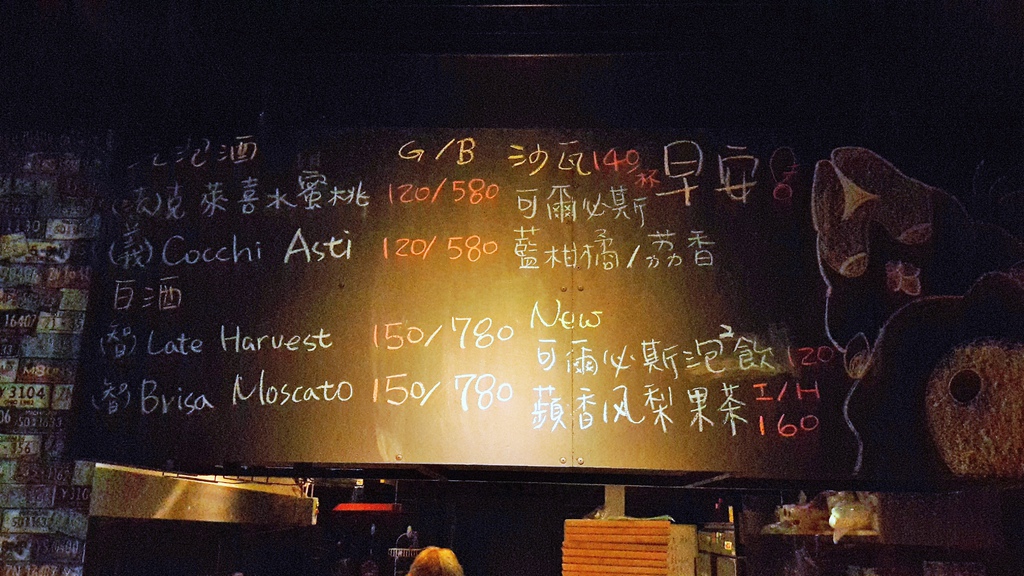 泡酒 G/B
(法)克萊喜水蜜桃 120/580
(義)Cocchi Asti 120/580
白酒
(智)Late Harvest 150/780
(智)Brisa Moscato 150/780
沙瓦140/杯
可爾必斯
藍柑橘/荔香
早安
New
可爾必斯泡泡飲 120
蘋香风梨果茶 I/H
160
3104